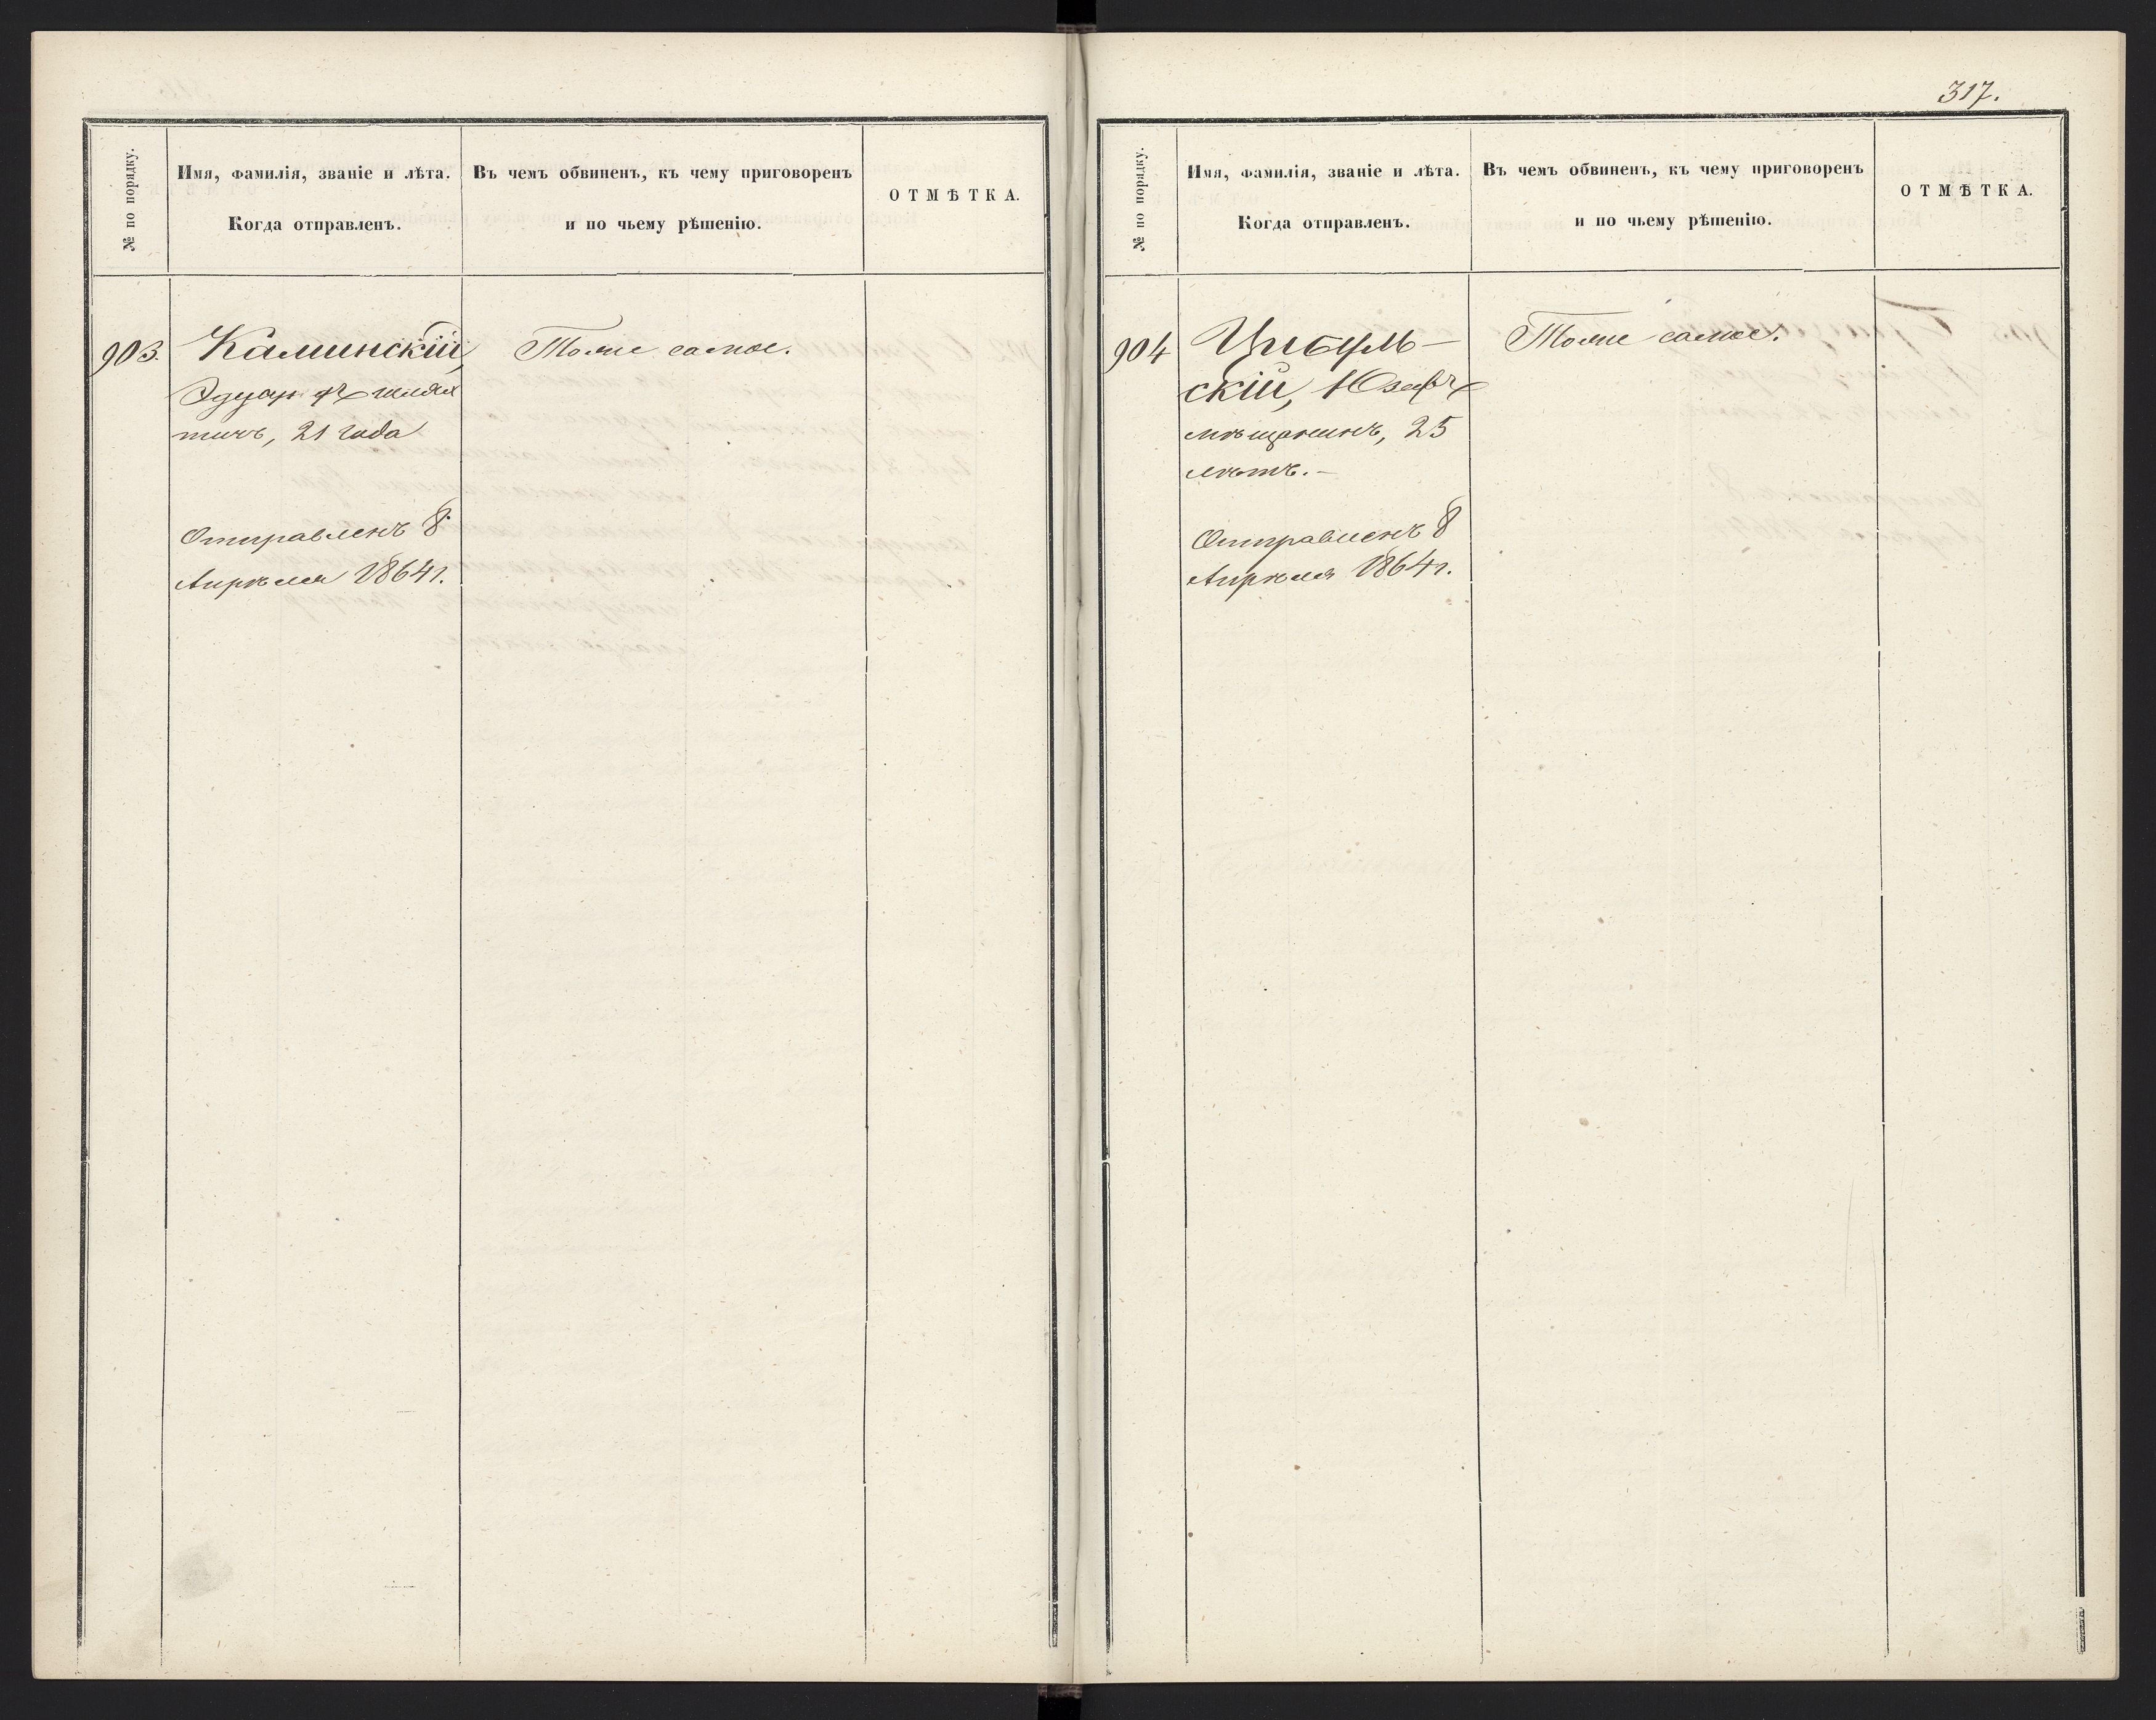 № по порядку.
Имя, фамилія, званіе и лѣта.
Когда отправленъ.
Въ чемъ обвиненъ, къ чему приговоренъ
и по чьему рѣшенію.
ОТМѢТКА.
903.
Калинскій,
Эдуардъ шлях
тичъ, 21 года
Отправленъ 8
Апрѣля 1864 г.
Тоже самое.
317.
№ по порядку.
Имя, фамилія, званіе и лѣта.
Когда отправленъ.
Въ чемъ обвиненъ, къ чему приговоренъ
и по чьему рѣшенію.
ОТМѢТКА.
904
Цибуль-
скій, Юзефъ
мѣщанинъ, 25
лѣтъ.-
Отправленъ 8
Апрѣля 1864 г.
Тоже самое.